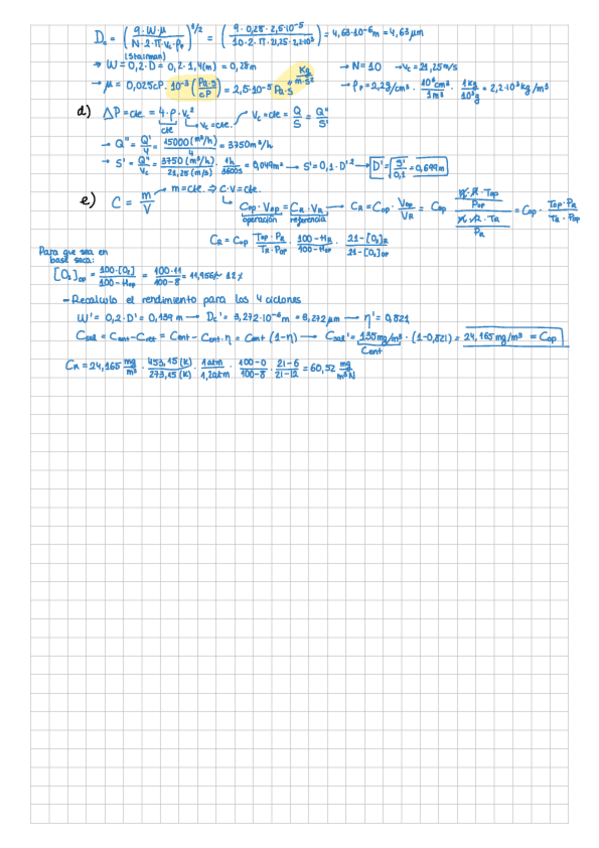 Dc = (9·W·μ / N·2·π·vc·ρp)^1/2 = (9·0,28·2,5·10⁻⁵ / 10·2·π·21,25·2,2·10³) = 4,63·10⁻⁶ m = 4,63 μm
(Stairman)
→ W = 0,2·D = 0,2·1,4(m) = 0,28m → N=10 → vc = 21,25 m/s
→ μ = 0,025cP · 10⁻³ (Pa·s / cP) = 2,5·10⁻⁵ Pa·s " Kg / m·s² → ρp = 2,2g/cm³ · 10⁶cm³ / 1m³ · 1kg / 10³g = 2,2·10³ kg/m³
d) ΔP = cte. = 4·ρ·vc² vc = cte. = Q / S = Q'' / S'
cte vc = cte.
→ Q'' = Q' / 4 = 15000 (m³/h) / 4 = 3750 m³/h
→ S' = Q'' / vc = 3750 (m³/h) / 21,25 (m/s) · 1h / 3600s = 0,049m² → S' = 0,1·D'² → D' = √(S' / 0,1) = 0,699m
e) C = m / V → m = cte. ⇒ C·V = cte.
Cop·Vop = CR·VR → CR = Cop · Vop / VR = Cop · (n·R·Top / Pop) / (n·R·TR / PR) = Cop · Top·PR / TR·Pop
operación referencia
CR = Cop · Top·PR / TR·Pop · 100-HR / 100-Hop · 21-[O₂]R / 21-[O₂]op
Para que sea en
base seca:
[O₂]op = 100·[O₂] / 100-Hop = 100·11 / 100-8 = 11,956 ≈ 12 %
- Recalculo el rendimiento para los 4 ciclones
W' = 0,2·D' = 0,139 m → Dc' = 3,272·10⁻⁶ m = 3,272 μm → η' = 0,821
Csal = Cent - Cret = Cent - Cent·η = Cent (1-η) → Csal' = 135 mg/m³ · (1-0,821) = 24,165 mg/m³ = Cop
Cent
CR = 24,165 mg / m³ · 453,15 (K) / 273,15 (K) · 1atm / 1,2atm · 100-0 / 100-8 · 21-6 / 21-12 = 60,52 mg / m³N